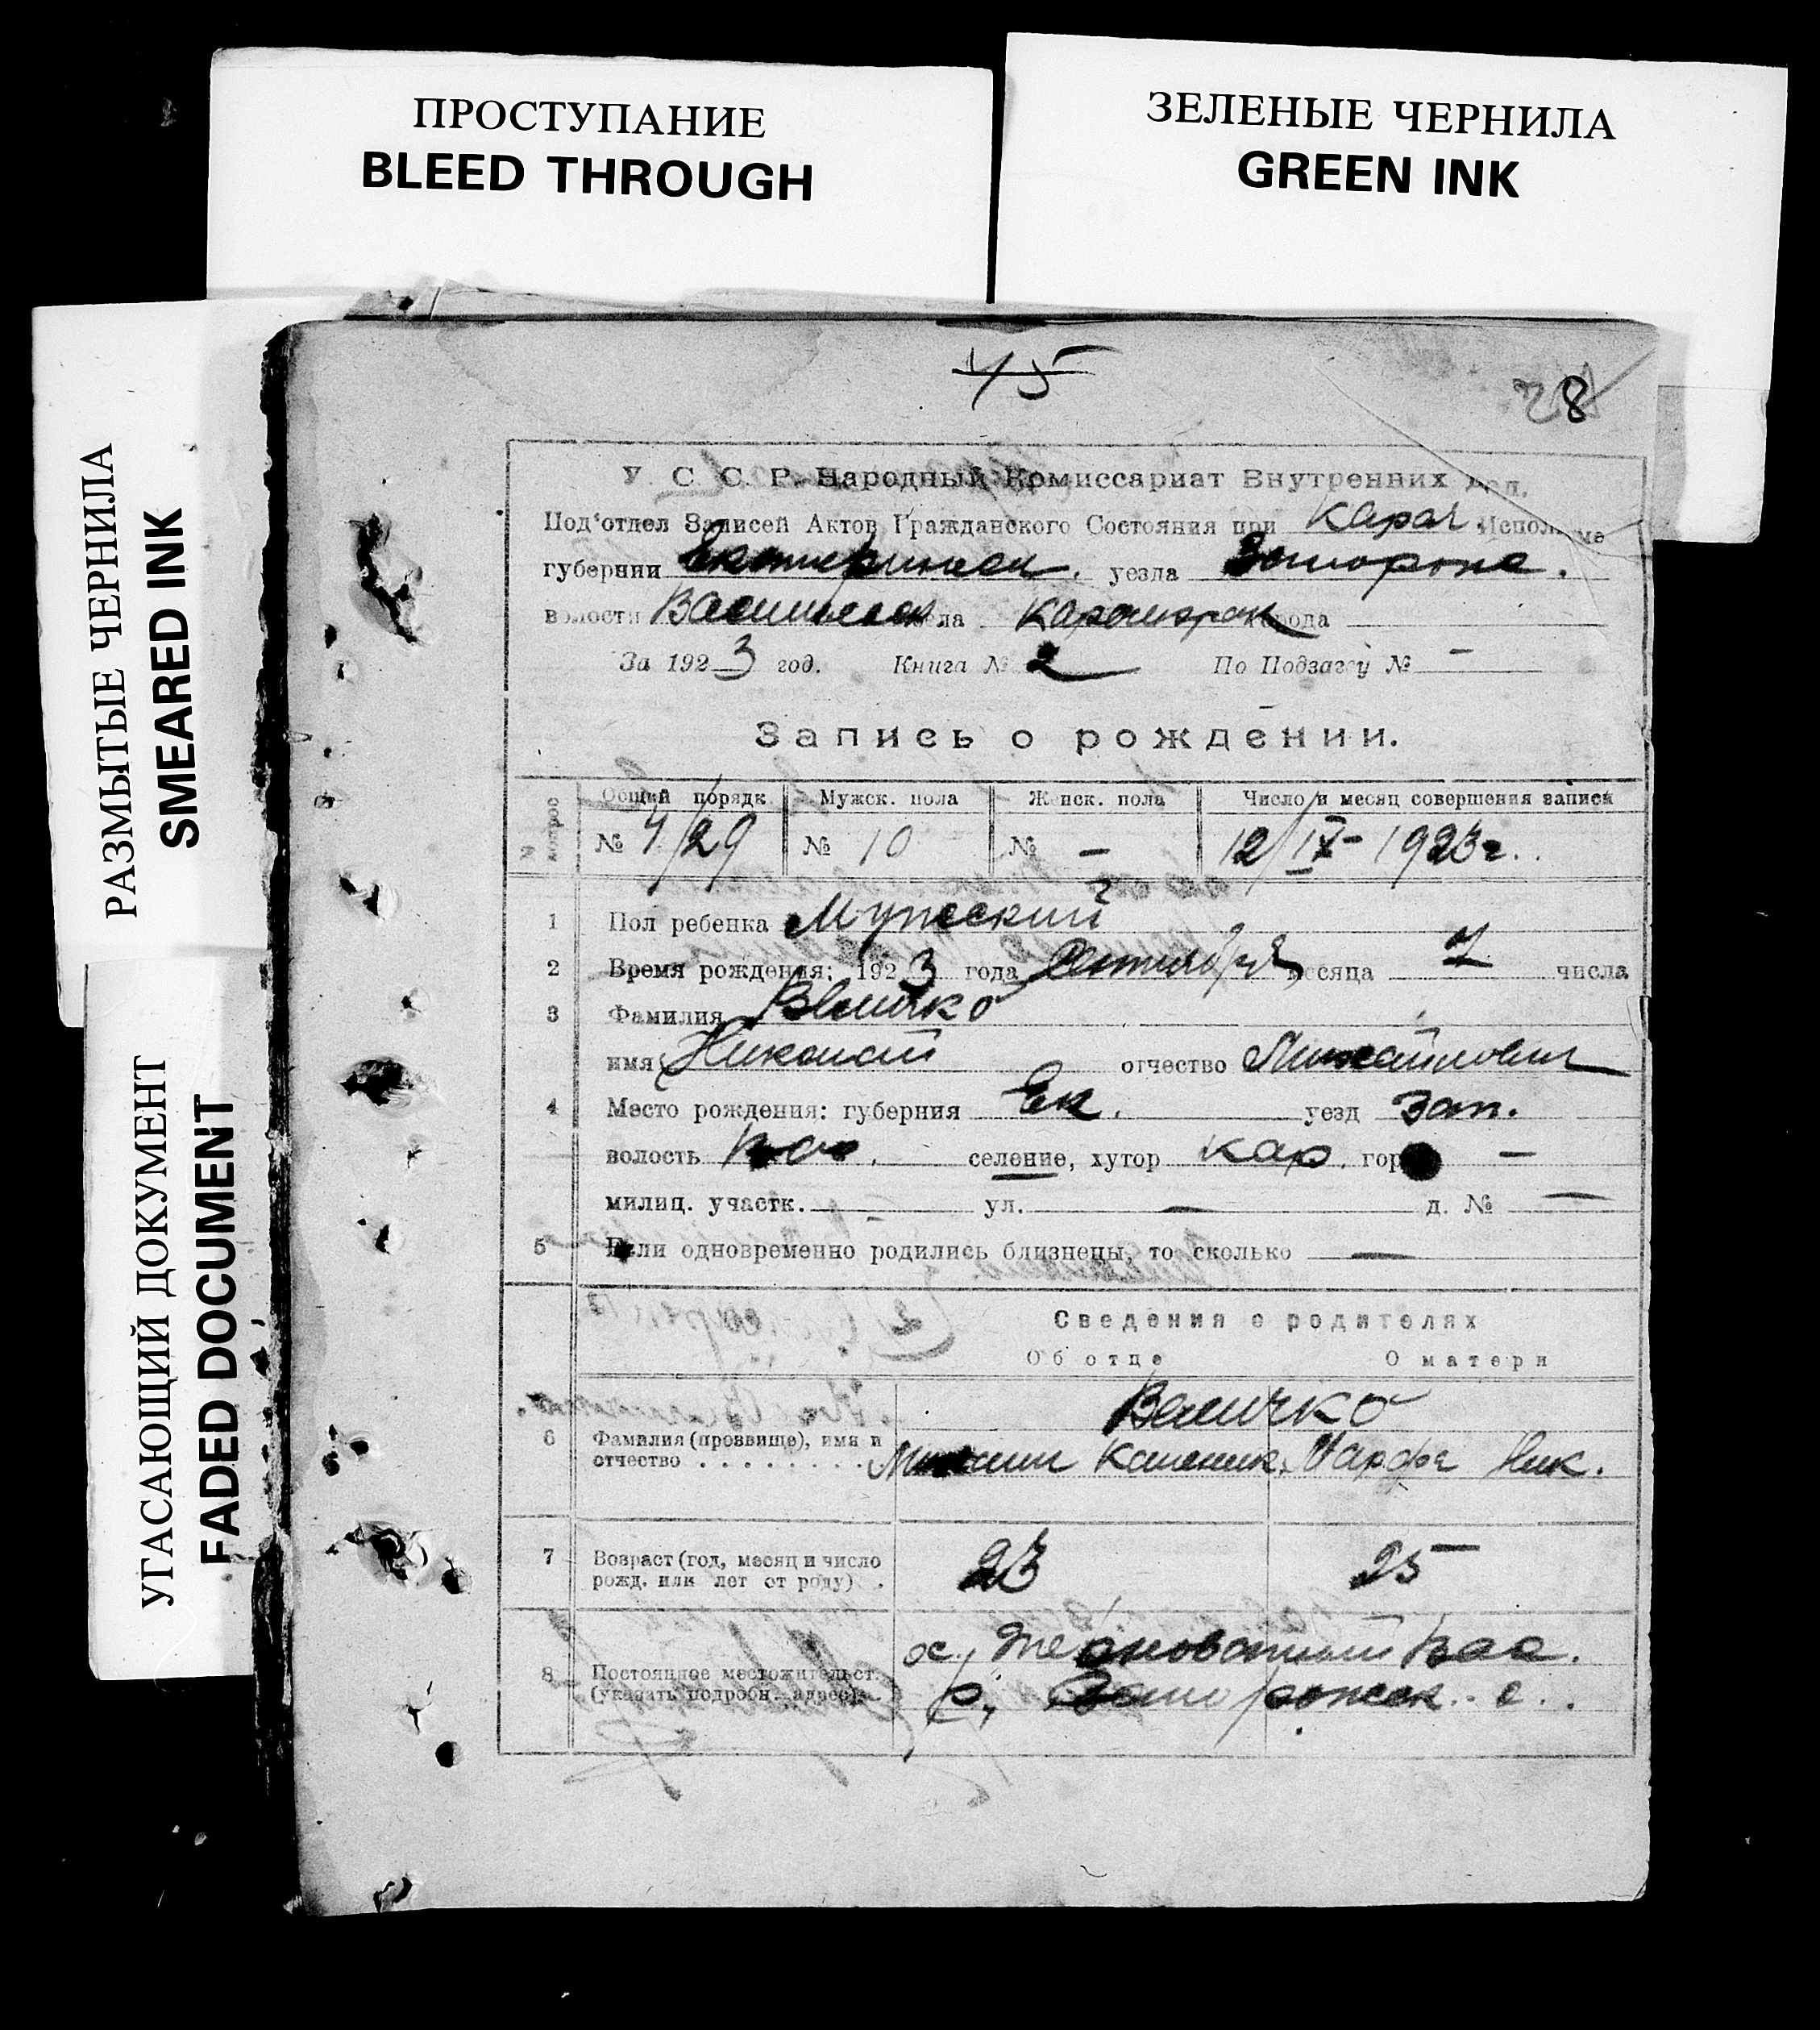 ПРОСТУПАНИЕ
BLEED THROUGH
ЗЕЛЕНЫЕ ЧЕРНИЛА
GREEN INK
РАЗМЫТЫЕ ЧЕРНИЛА
SMEARED INK
УГАСАЮЩИЙ ДОКУМЕНТ
FADED DOCUMENT
45
28
У. С. С. Р. Народный Комиссариат Внутренних Дел.
Под'отдел Записей Актов Гражданского Состояния при Карач. Исполкоме
губернии Екатериносл. уезла Запорожс.
волости Васильевск села Карачекрак города
За 1923 год. Книга № 2 По Подзагсу № -
Запись о рождении.
№ вопрос
Общий порядк
Мужск. пола
Женск. пола
Число и месяц совершения записи
№ 4/29
№ 10
№ -
12/IX-1923г.
1 Пол ребенка Мужской
2 Время рождения: 1923 года Сентября месяца 7 числа
3 Фамилия Величко
имя Николай отчество Михайлович
4 Место рождения: губерния Ек. уезд Зап.
волость Вас. селение, хутор Кар. гор -
милиц. участк. - ул. - д. № -
5 Если одновременно родились близнецы, то сколько -
Сведения о родителях
Об отце О матери
Величко
6 Фамилия (прозвище), имя и
отчество . . . . . . . . Михаил Марфа Ник.
7 Возраст (год, месяц и число
рожд. или лет от роду) . 23 25
8 Постоянное местожительст.
(указать подробн. адрес)
Вас.
р, Запорожск. о.